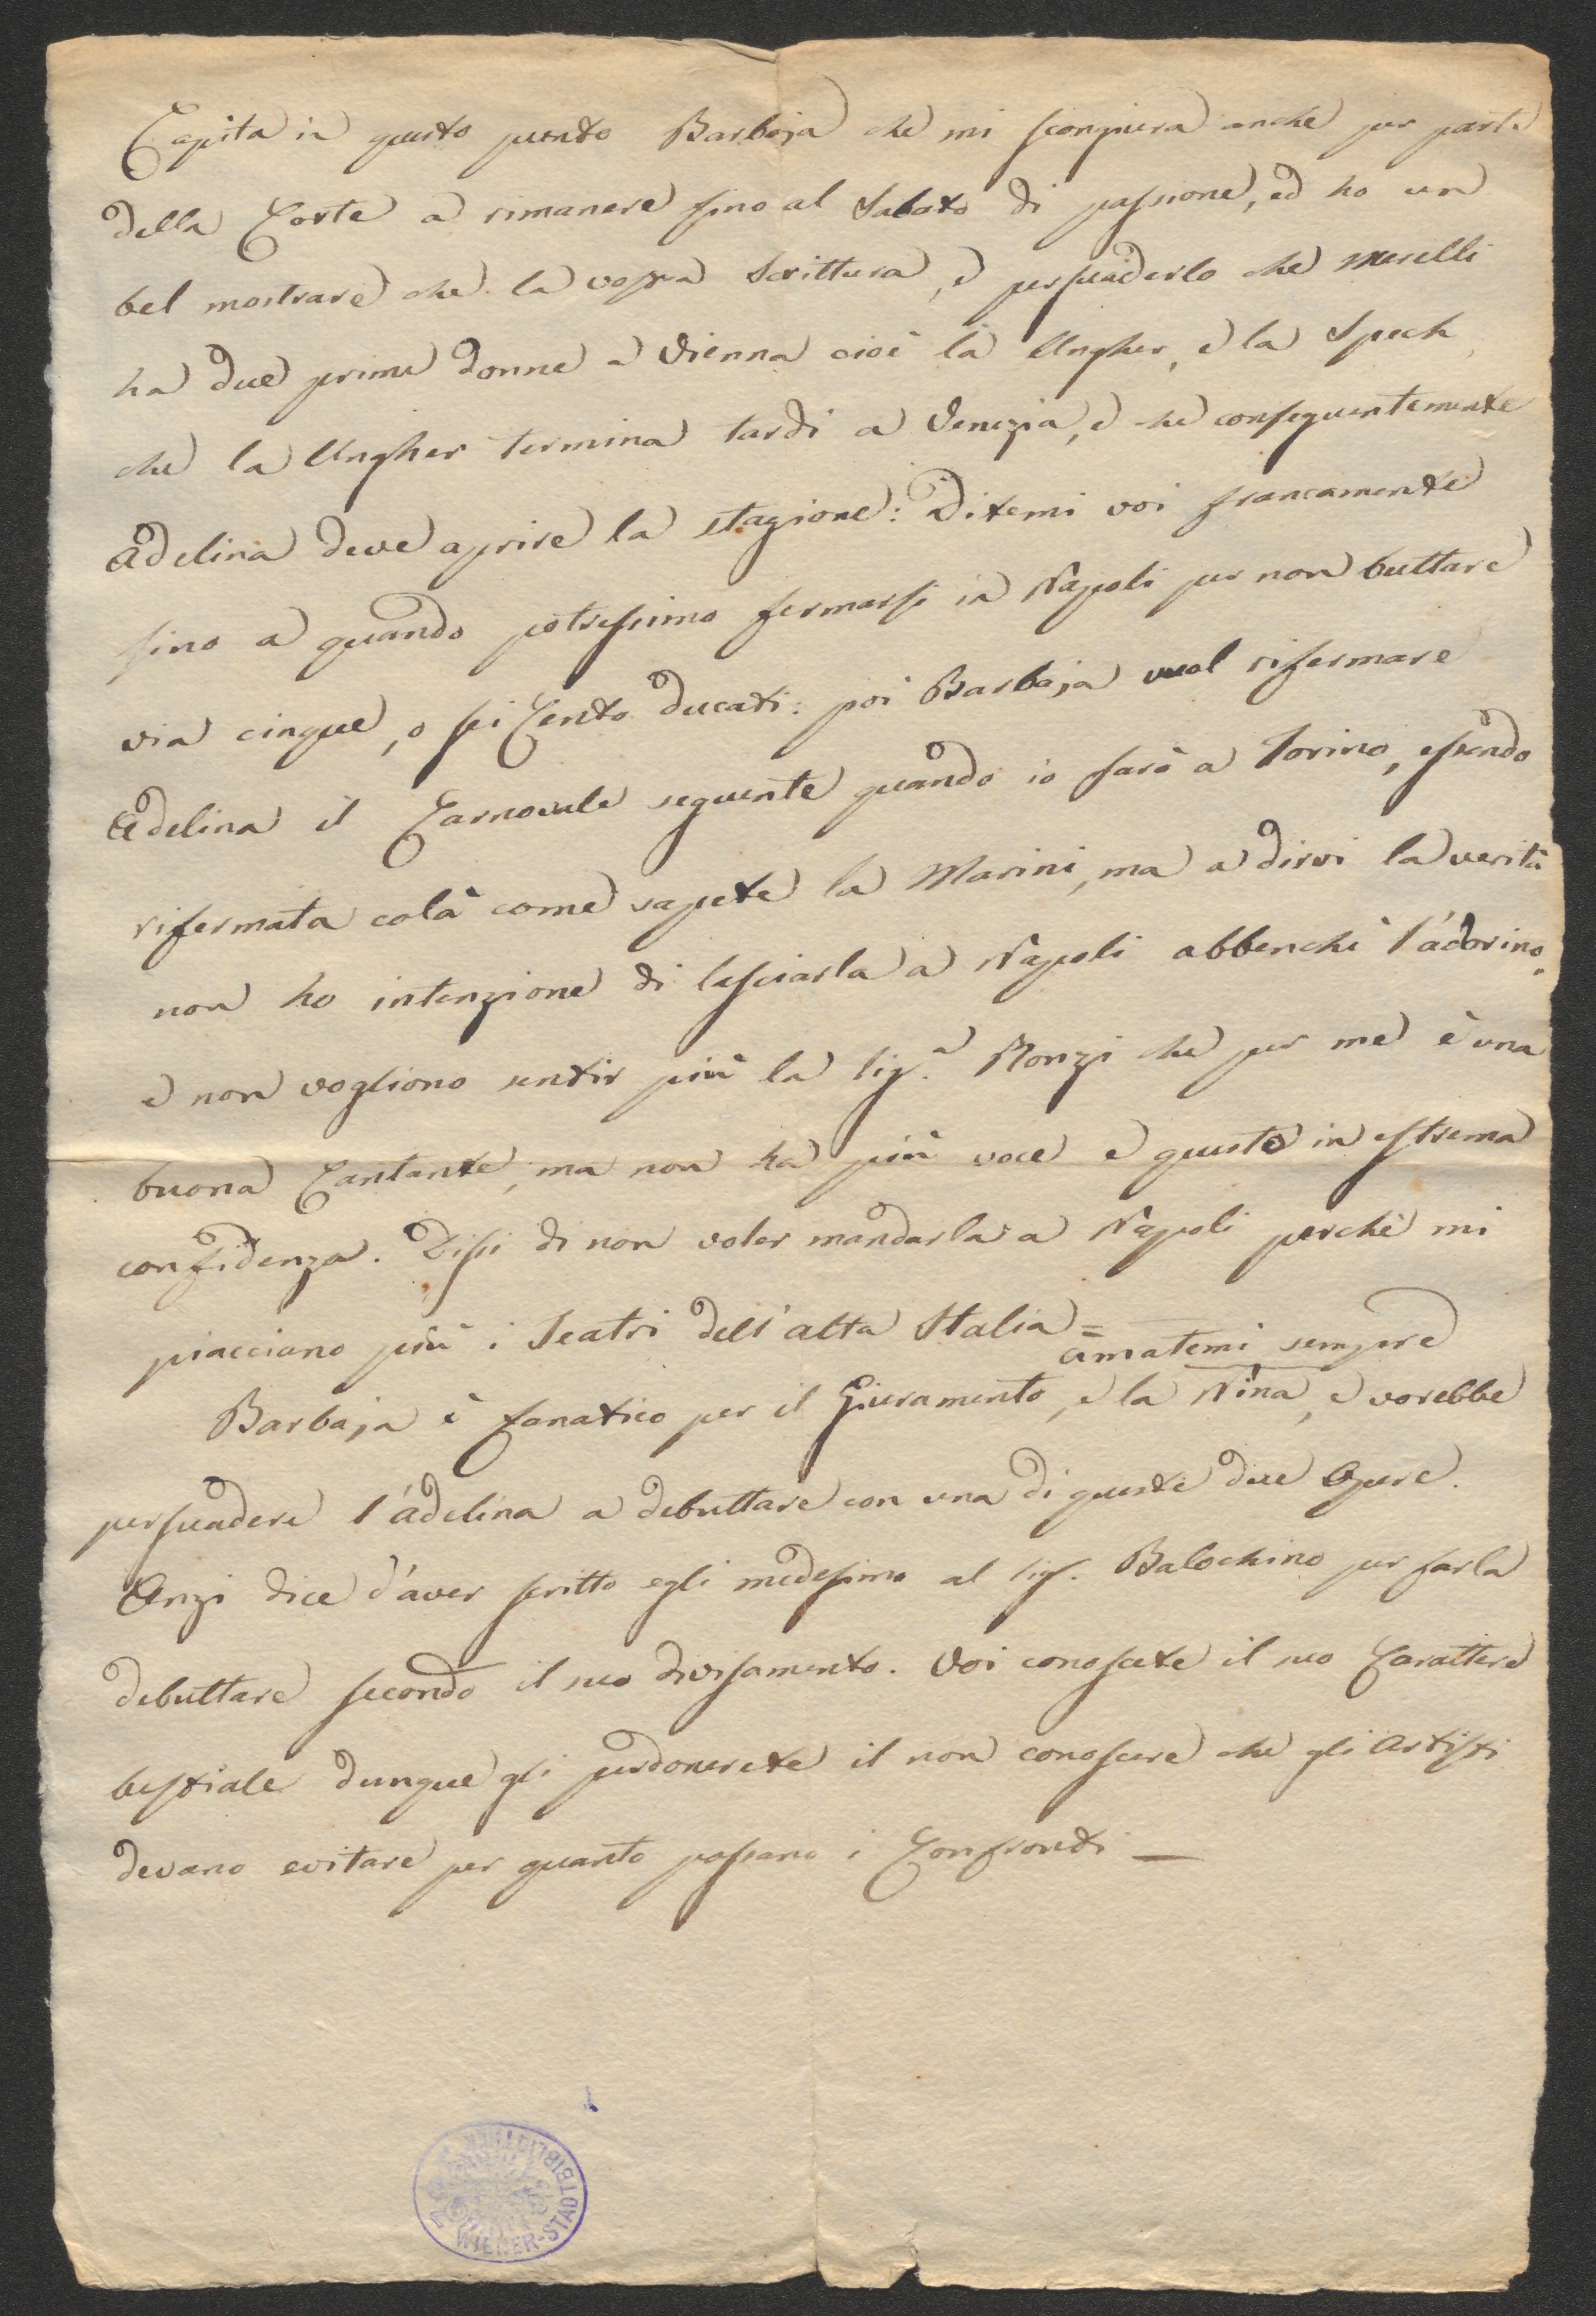 Capita in questo punto Barbaja che mi scongiura anche per parte
della Corte a rimanere sino al Sabato di passione, ed ho un
bel mostrare che la vostra Scrittura, e persuaderlo che Merelli
ha due prime donne a Vienna cioè la Ungher, e la Spech,
che la Ungher termina tardi a Venezia, e che conseguentemente
Adelina deve aprire la stagione: Ditemi voi francamente
sino a quando potressimo fermarsi in Napoli per non buttare
via cinque, o sei Cento ducati: poi Barbaja vuol rifermare
Adelina il Carnovale seguente quando io sarò a Torino, essendo
rifermata colà come sapete la Marini, ma a dirvi la verità
non ho intenzione di lasciarla a Napoli abbenchè l'adorino,
e non vogliono sentir più la Sig.ª Ronzi che per me è una
buona Cantante, ma non ha più voce e questo in estrema
confidenza. Dissi di non voler mandarla a Napoli perchè mi
piacciano più i Teatri dell'alta Italia =
amatemi sempre
Barbaja è fanatico per il Giuramento, e la Nina, e vorebbe
persuadere l'Adelina a debuttare con una di queste due Opere.
Anzi dice d'aver scritto egli medesimo al Sig. Balochino per farla
debuttare secondo il suo divisamento. Voi conoscete il suo Carattere
bestiale dunque gli perdonerete il non conoscere che gli Artisti
devano evitare per quanto possano i Confronti —
WIENER-STADTBIBLIOTHEK